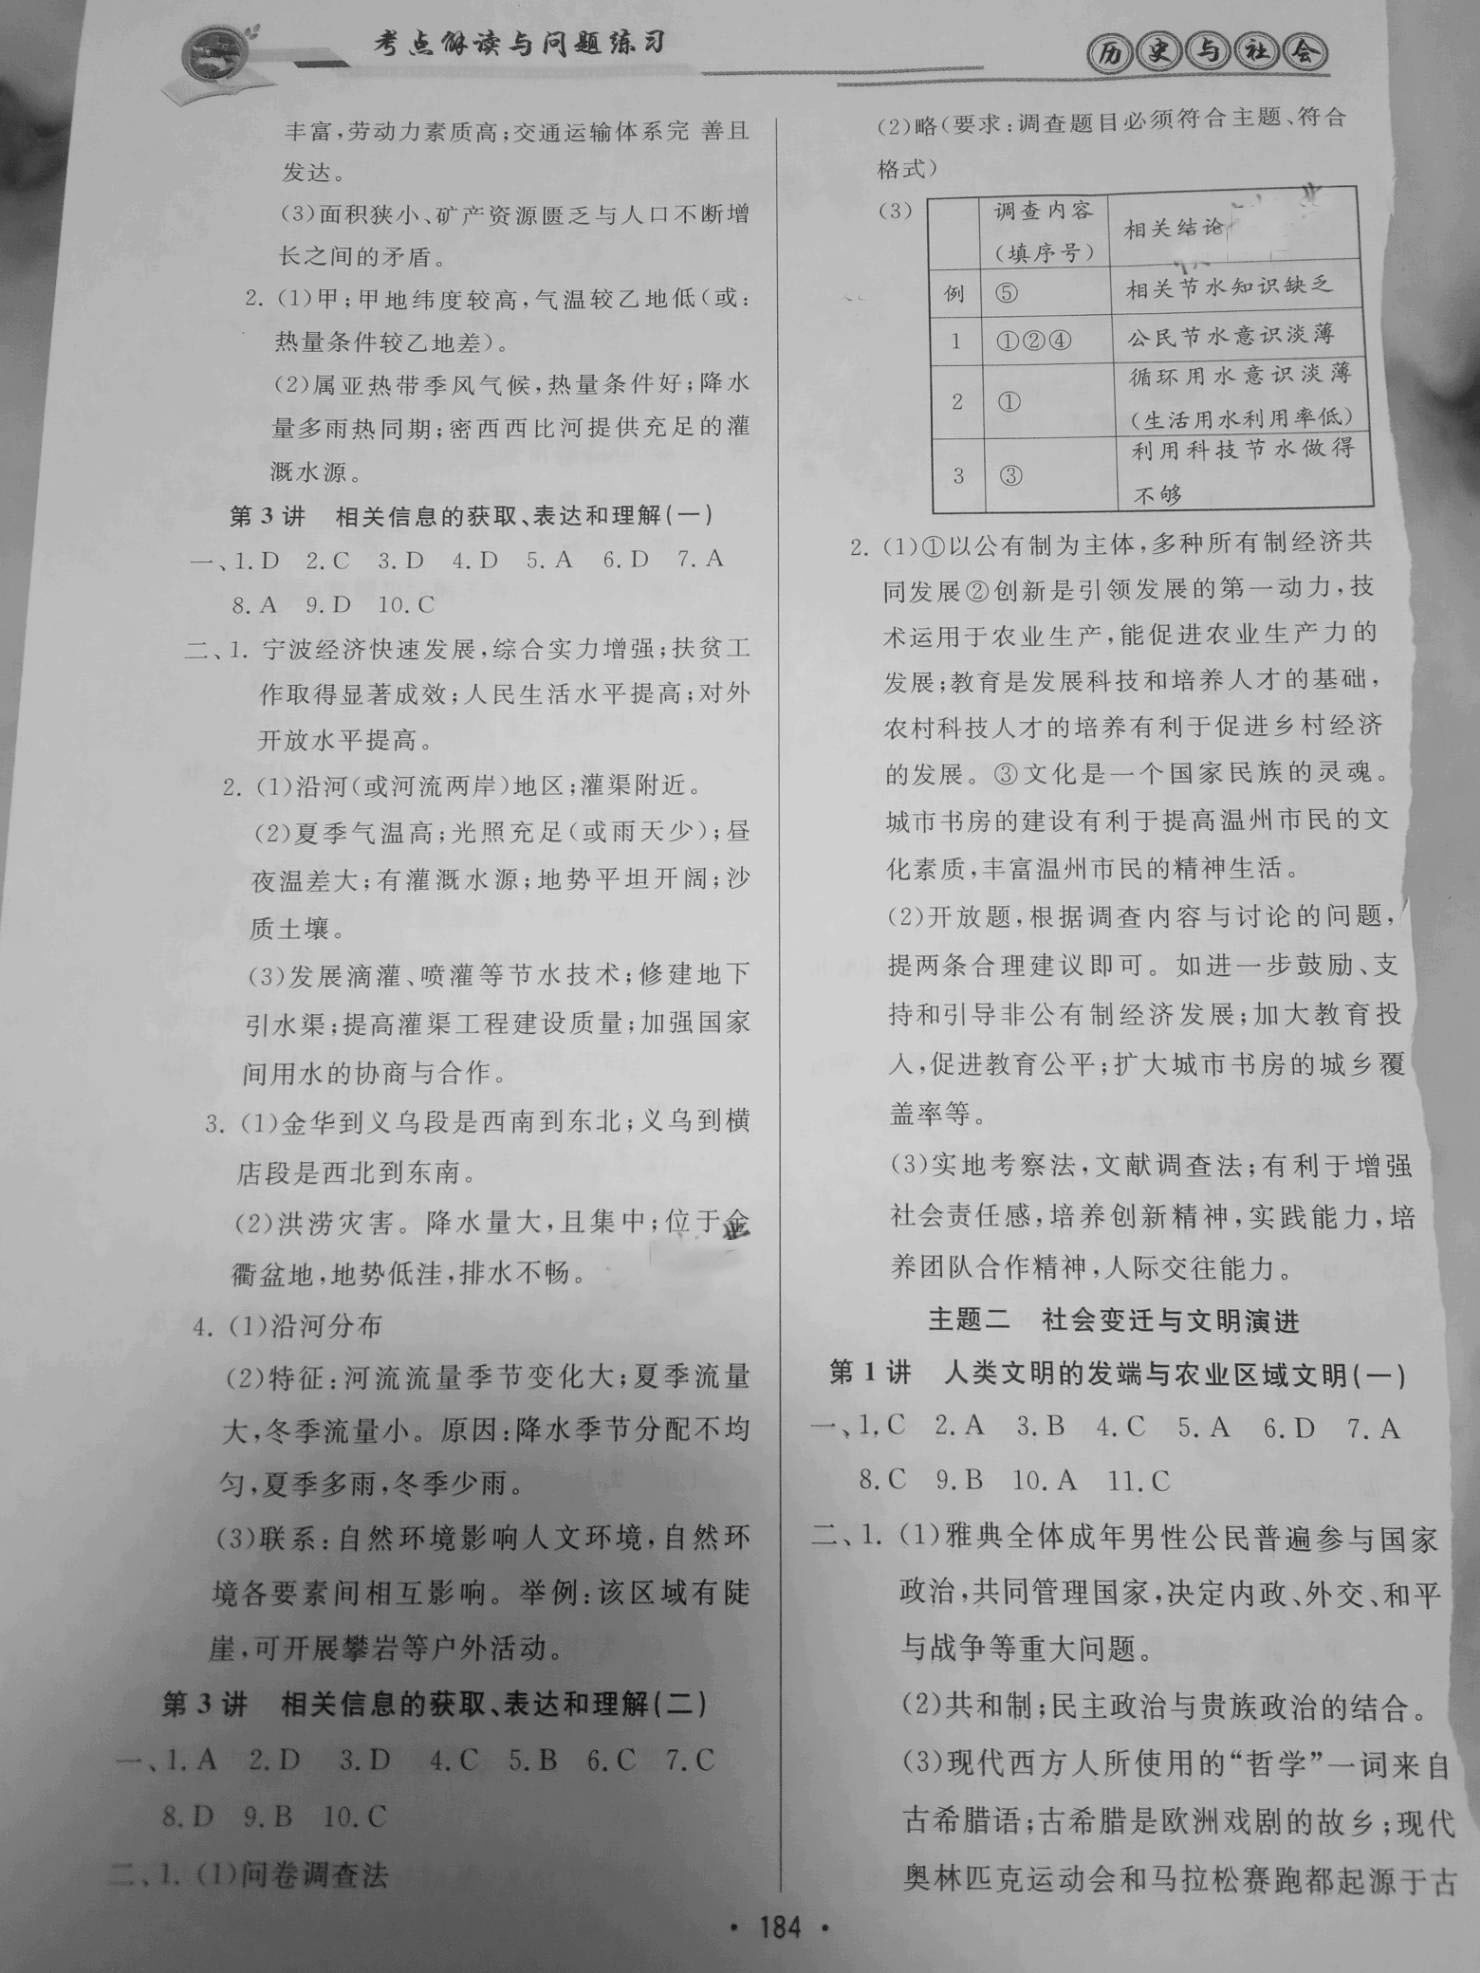 考点解读与问题练习
历史与社会
丰富,劳动力素质高;交通运输体系完 善且
发达。
(3)面积狭小、矿产资源匮乏与人口不断增
长之间的矛盾。
2. (1)甲;甲地纬度较高,气温较乙地低(或:
热量条件较乙地差)。
(2)属亚热带季风气候,热量条件好;降水
量多雨热同期;密西西比河提供充足的灌
溉水源。
第 3 讲　相关信息的获取、表达和理解(一)
一、1. D　2. C　3. D　4. D　5. A　6. D　7. A
8. A　9. D　10. C
二、1. 宁波经济快速发展,综合实力增强;扶贫工
作取得显著成效;人民生活水平提高;对外
开放水平提高。
2. (1)沿河(或河流两岸)地区;灌渠附近。
(2)夏季气温高;光照充足(或雨天少);昼
夜温差大;有灌溉水源;地势平坦开阔;沙
质土壤。
(3)发展滴灌、喷灌等节水技术;修建地下
引水渠;提高灌渠工程建设质量;加强国家
间用水的协商与合作。
3. (1)金华到义乌段是西南到东北;义乌到横
店段是西北到东南。
(2)洪涝灾害。降水量大,且集中;位于金
衢盆地,地势低洼,排水不畅。
4. (1)沿河分布
(2)特征:河流流量季节变化大;夏季流量
大,冬季流量小。原因:降水季节分配不均
匀,夏季多雨,冬季少雨。
(3)联系:自然环境影响人文环境,自然环
境各要素间相互影响。举例:该区域有陡
崖,可开展攀岩等户外活动。
第 3 讲　相关信息的获取、表达和理解(二)
一、1. A　2. D　3. D　4. C　5. B　6. C　7. C
8. D　9. B　10. C
二、1. (1)问卷调查法
(2)略(要求:调查题目必须符合主题、符合
格式)
(3)
调查内容
(填序号)
相关结论
例　⑤　相关节水知识缺乏
1　①②④　公民节水意识淡薄
2　①　循环用水意识淡薄
(生活用水利用率低)
3　③　利用科技节水做得
不够
2. (1)①以公有制为主体,多种所有制经济共
同发展②创新是引领发展的第一动力,技
术运用于农业生产,能促进农业生产力的
发展;教育是发展科技和培养人才的基础,
农村科技人才的培养有利于促进乡村经济
的发展。③文化是一个国家民族的灵魂。
城市书房的建设有利于提高温州市民的文
化素质,丰富温州市民的精神生活。
(2)开放题,根据调查内容与讨论的问题,
提两条合理建议即可。如进一步鼓励、支
持和引导非公有制经济发展;加大教育投
人,促进教育公平;扩大城市书房的城乡覆
盖率等。
(3)实地考察法,文献调查法;有利于增强
社会责任感,培养创新精神,实践能力,培
养团队合作精神,人际交往能力。
主题二　社会变迁与文明演进
第 1 讲　人类文明的发端与农业区域文明(一)
一、1. C　2. A　3. B　4. C　5. A　6. D　7. A
8. C　9. B　10. A　11. C
二、1. (1)雅典全体成年男性公民普遍参与国家
政治,共同管理国家,决定内政、外交、和平
与战争等重大问题。
(2)共和制;民主政治与贵族政治的结合。
(3)现代西方人所使用的“哲学”一词来自
古希腊语;古希腊是欧洲戏剧的故乡;现代
奥林匹克运动会和马拉松赛跑都起源于古
· 184 ·